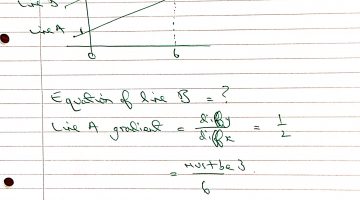 Line B
Line A 1
0 6
Equation of line B = ?
Line A gradient = diffy/diffx = 1/2
= must be 3/6